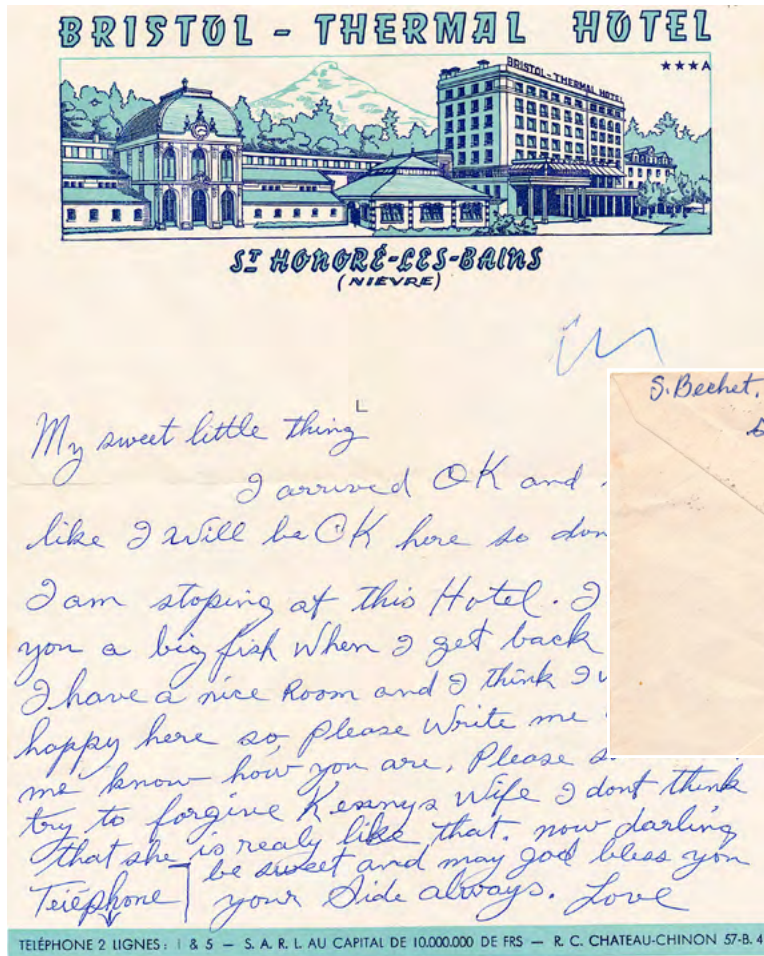 BRISTOL - THERMAL HOTEL
BRISTOL-THERMAL HOTEL
★★★A
ST HONORÉ-LES-BAINS
(NIÈVRE)
S. Bechet.
My sweet little thing
I arrived OK and
like I will be OK here so don
I am stoping at this Hotel. I
you a big fish When I get back
I have a nice Room and I think I
happy here so please Write me
me know how you are, Please
try to forgive Kennys Wife I dont think
that she is realy like that. now darling
be sweet and may god bless you
Teléphone your Side always. Love
TELÉPHONE 2 LIGNES: 1 & 5 — S. A. R. L. AU CAPITAL DE 10.000.000 DE FRS — R. C. CHATEAU-CHINON 57-B. 4